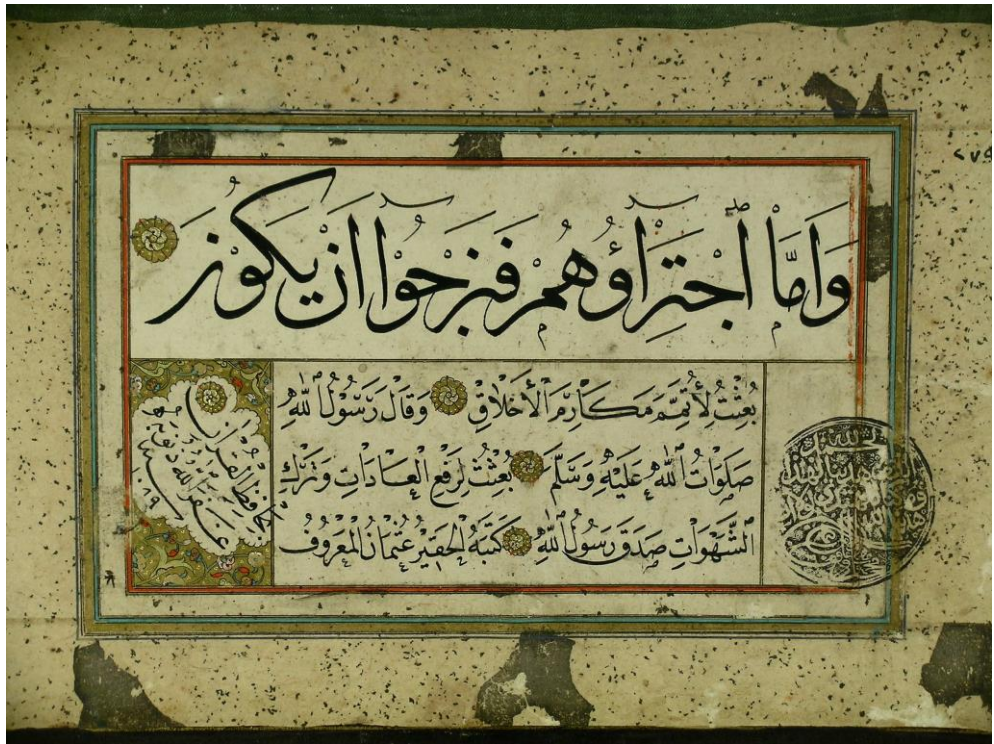 وَاَمَّا اجْتِرَاؤُهُمْ فَنَرْجُوا اَنْ يَكُونَ
بُعِثْتُ لِأُتَمِّمَ مَكَارِمَ الْأَخْلَاقِ وَقَالَ رَسُولُ اللّٰهِ
صَلَوَاتُ اللّٰهِ عَلَيْهِ وَسَلَّمَ بُعِثْتُ لِرَفْعِ الْعَادَاتِ وَتَرْكِ
الشَّهَوَاتِ صَدَقَ رَسُولُ اللّٰهِ كَتَبَهُ الْحَقِيرُ عُثْمَانُ الْمَعْرُوفُ
بِحَافِظِ الْقُرْاٰنِ
غفر الله ذنوبه
٢٧٩